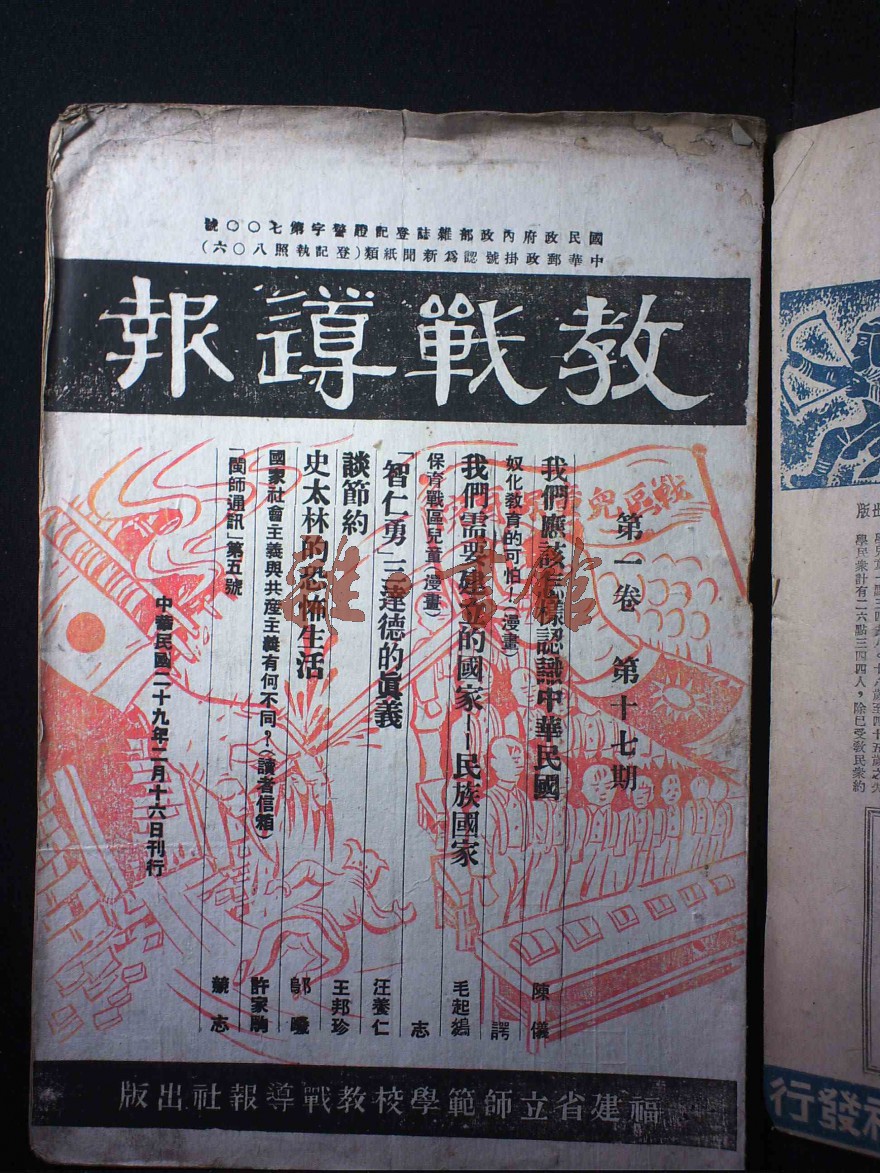 國民政府內政部雜誌登記證警字第七〇〇號
中華郵政掛號認為新聞紙類(登記執照八〇六)
教戰導報
第一卷 第十七期
我們應該怎樣認識中華民國 陳儀
奴化教育的可怕!(漫畫) 諤
我們需要建立的國家——民族國家 毛起鵕
保育戰區兒童(漫畫) 志
「智仁勇」三達德的眞義 汪養仁
談節約 王邦珍
史太林的恐怖生活 鄔曦
國家社會主義與共產主義有何不同?(讀者信箱) 許家駒
「閩師通訊」第五號 競志
中華民國二十九年二月十六日刊行
福建省立師範學校教戰導報社出版
戰區兒童
雜書館
學民衆計有二六點三四四人,除已受敎民衆約
發行